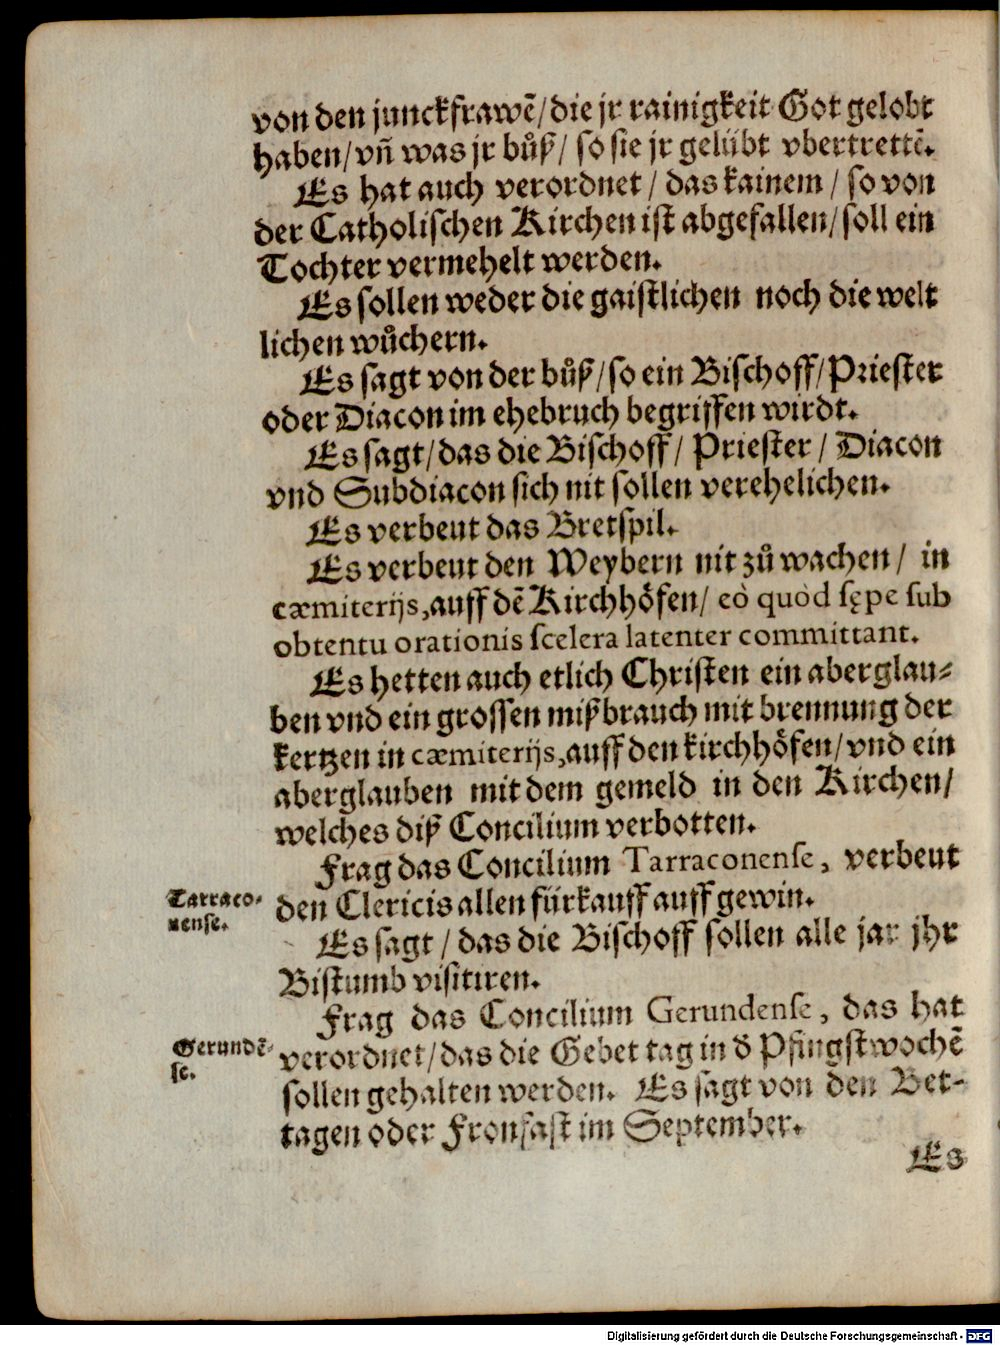 von den junckfrawẽ/die jr rainigkeit Got gelobt
haben/vñ was jr bůß/ so sie jr gelübt vbertrettẽ.
Es hat auch verordnet / das kainem / so von
der Catholischen Kirchen ist abgefallen/soll ein
Tochter vermehelt werden.
Es sollen weder die gaistlichen noch die welt
lichen wůchern.
Es sagt von der bůß/so ein Bischoff/Priester
oder Diacon im ehebruch begriffen wirdt.
Es sagt/das die Bischoff/ Priester / Diacon
vnd Subdiacon sich nit sollen verehelichen.
Es verbeut das Bretspil.
Es verbeut den Weybern nit zů wachen / in
cæmiterijs,auff dẽ Kirchhöfen/ eò quòd sępe sub
obtentu orationis scelera latenter committant.
Es hetten auch etlich Christen ein aberglau⸗
ben vnd ein grossen mißbrauch mit brennung der
kertzen in cæmiterijs,auff den kirchhöfen/vnd ein
aberglauben mit dem gemeld in den Kirchen/
welches diß Concilium verbotten.
Frag das Concilium Tarraconense, verbeut
Tarraco⸗
nense.
den Clericis allen fürkauff auff gewin.
Es sagt / das die Bischoff sollen alle jar jhr
Bistumb visitiren.
Frag das Concilium Gerundense, das hat
Gerundẽ⸗
se.
verordnet/das die Gebet tag in d̕ Pfingstwochẽ
sollen gehalten werden. Es sagt von den Bet⸗
tagen oder Fronfast im September.
Es
Digitalisierung gefördert durch die Deutsche Forschungsgemeinschaft - DFG